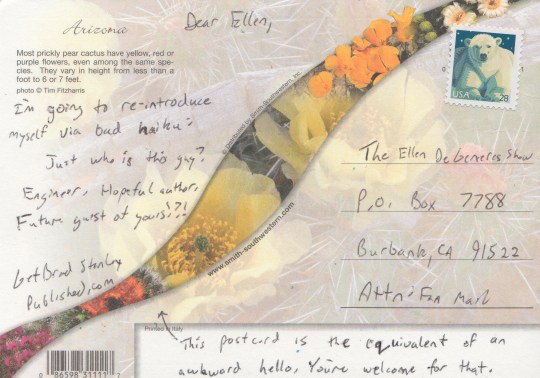 Arizona
Most prickly pear cactus have yellow, red or
purple flowers, even among the same spe-
cies. They vary in height from less than a
foot to 6 or 7 feet.
photo © Tim Fitzharris
Dear Ellen,
I'm going to re-introduce
myself via bad haiku:
Just who is this guy?
Engineer. Hopeful author.
Future guest of yours?!?!
GetBradStanley
Published.com
Distributed by Smith-Southwestern, Inc.
www.smith-southwestern.com
USA
28
The Ellen DeGeneres Show
P.O. Box 7788
Burbank, CA 91522
Attn: Fan Mail
Printed in Italy
This postcard is the equivalent of an
awkward hello. You're welcome for that.
0 86598 31111 7